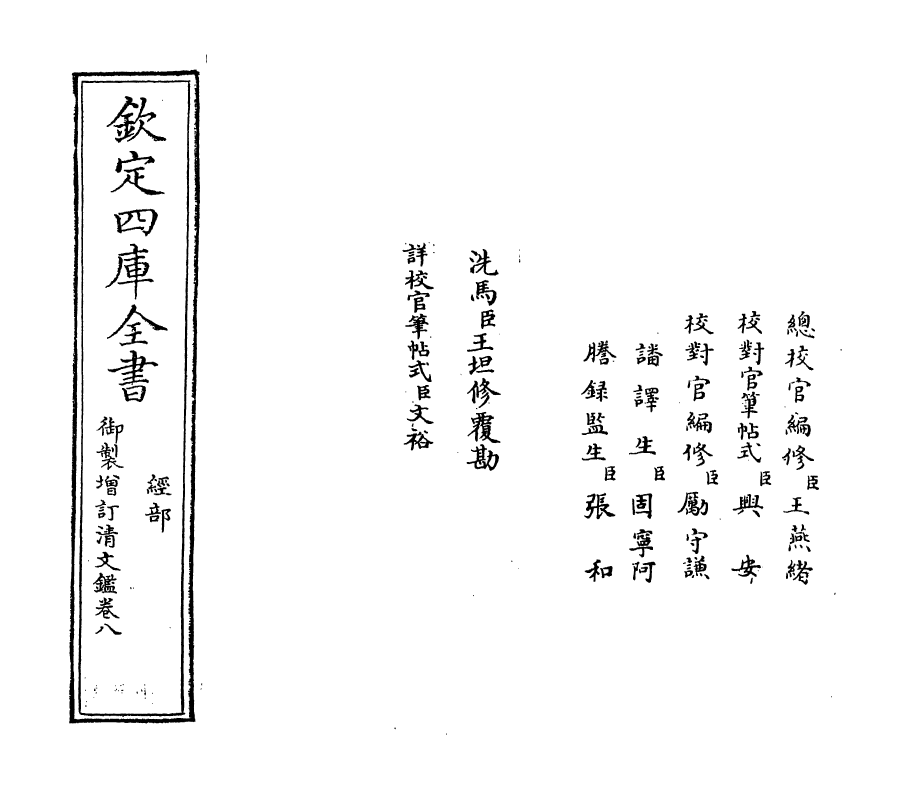 總校官編修臣王燕緒
校對官筆帖式臣興安
校對官編修臣勵守謙
譒譯生臣固寧阿
謄録監生臣張和
洗馬臣王坦修覆勘
詳校官筆帖式臣文裕
欽定四庫全書
經部
御製增訂清文鑑卷八